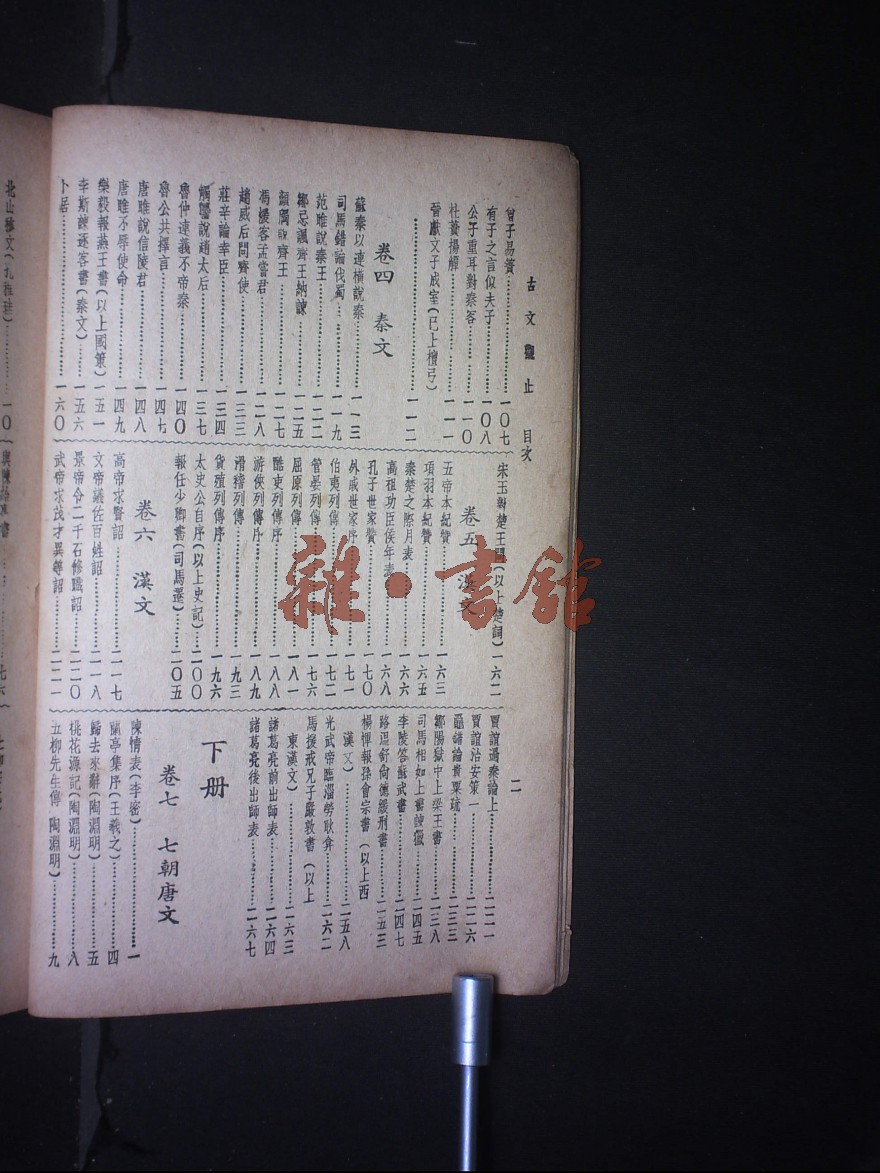 古文觀止 目次
二
曾子易簀……一〇七
有子之言似夫子……一〇八
公子重耳對秦客……一一〇
杜蕢揚觶……一一一
晉獻文子成室(已上檀弓)
……一一二
卷四 秦文
蘇秦以連橫說秦……一一三
司馬錯論伐蜀……一一九
范雎說秦王……一二二
鄒忌諷齊王納諫……一二五
顏斶說齊王……一二七
馮煖客孟嘗君……一二八
趙威后問齊使……一三三
莊辛論幸臣……一三四
觸讋說趙太后……一三七
魯仲連義不帝秦……一四〇
魯公共擇言……一四七
唐雎說信陵君……一四八
唐雎不辱使命……一四九
樂毅報燕王書(以上國策)一五一
李斯諫逐客書(秦文)……一五六
卜居……一六〇
宋玉對楚王問(以上楚詞)一六二
卷五 漢文
五帝本紀贊……一六三
項羽本紀贊……一六五
秦楚之際月表……一六六
高祖功臣侯年表……一六八
孔子世家贊……一七〇
外戚世家序……一七一
伯夷列傳……一七二
管晏列傳……一七六
屈原列傳……一八一
酷吏列傳序……一八八
游俠列傳序……一八九
滑稽列傳……一九三
貨殖列傳序……一九六
太史公自序(以上史記)二〇〇
報任少卿書(司馬遷)……二〇五
卷六 漢文
高帝求賢詔……二一七
文帝議佐百姓詔……二一八
景帝令二千石修職詔……二二〇
武帝求茂才異等詔……二二一
賈誼過秦論上……二二一
賈誼治安策一……二二六
鼂錯論貴粟疏……二三三
鄒陽獄中上梁王書……二三八
司馬相如上書諫獵……二四五
李陵答蘇武書……二四七
路溫舒尙德緩刑書……二五三
楊惲報孫會宗書(以上西
漢文)……二五八
光武帝臨淄勞耿弇……二六二
馬援戒兄子嚴敦書(以上
東漢文)……二六三
諸葛亮前出師表……二六四
諸葛亮後出師表……二六七
下册
卷七 七朝唐文
陳情表(李密)……一
蘭亭集序(王羲之)……四
歸去來辭(陶淵明)……五
桃花源記(陶淵明)……八
五柳先生傳(陶淵明)……九
北山移文(孔稚珪)……一〇
雜·書館